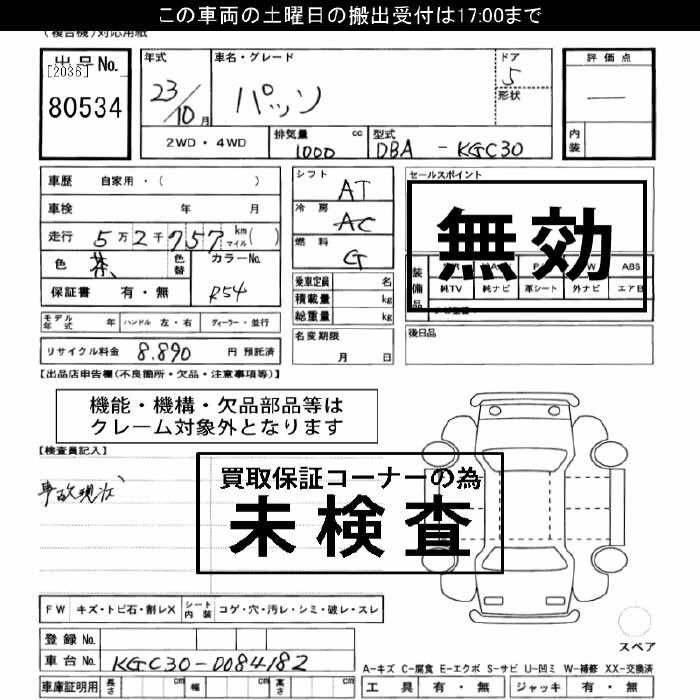 この車両の土曜日の搬出受付は17:00まで
(複合機)対応用紙
出品No.
[2036]
80534
年式
23/10月
車名・グレード
パッソ
ドア
5
形状
評価点
—
内装
2WD・4WD
排気量 1000 cc
型式 DBA - KGC30
車歴 自家用・( )
車検 年 月
走行 5万2千757 km マイル( )
色 茶
色替
カラーNo. R54
保証書 有・無
モデル年式 年 ハンドル 左・右 ディーラー・並行
リサイクル料金 8.890 円 預託済
シフト AT
冷房 AC
燃料 G
乗車定員 名
積載量 kg
総重量 kg
名変期限
月 日
セールスポイント
無効
装備品
ABS
純TV 純ナビ 革シート 外ナビ エアB
後日品
【出品店申告欄(不良箇所・欠品・注意事項等)】
機能・機構・欠品部品等は
クレーム対象外となります
【検査員記入】
事故現状
買取保証コーナーの為
未検査
FW キズ・トビ石・割レX シート内装 コゲ・穴・汚レ・シミ・破レ・スレ
登録No.
車台No. KGC30-0084182
車庫証明用 長さ cm 幅 cm 高さ cm
スペア
A-キズ C-腐食 E-エクボ S-サビ U-凹ミ W-補修 XX-交換済
工具 有・無 ジャッキ 有・無